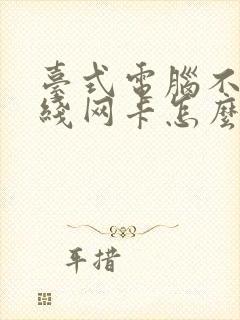 臺式電腦不
綫网卡怎麽
耳措